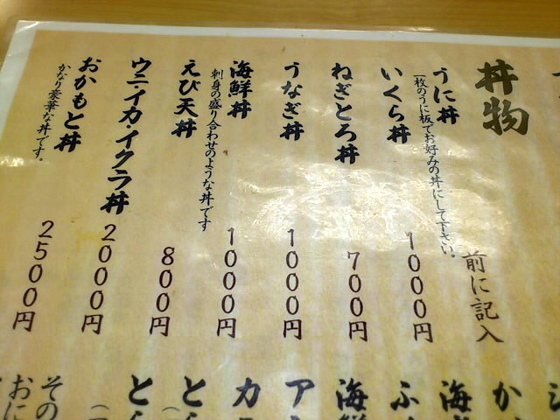 丼物
うに丼 前に記入
(一枚のうに板でお好みの丼にして下さい。
いくら丼 1000円
ねぎとろ丼 700円
うなぎ丼 1000円
海鮮丼 1000円
刺身の盛り合わせのような丼です
えび天丼 800円
ウニ・イカ・イクラ丼 2000円
おかもと丼 2500円
かなり豪華な丼です。
か
海
ふ
海鮮
ア
カ
と
とん
その
おに